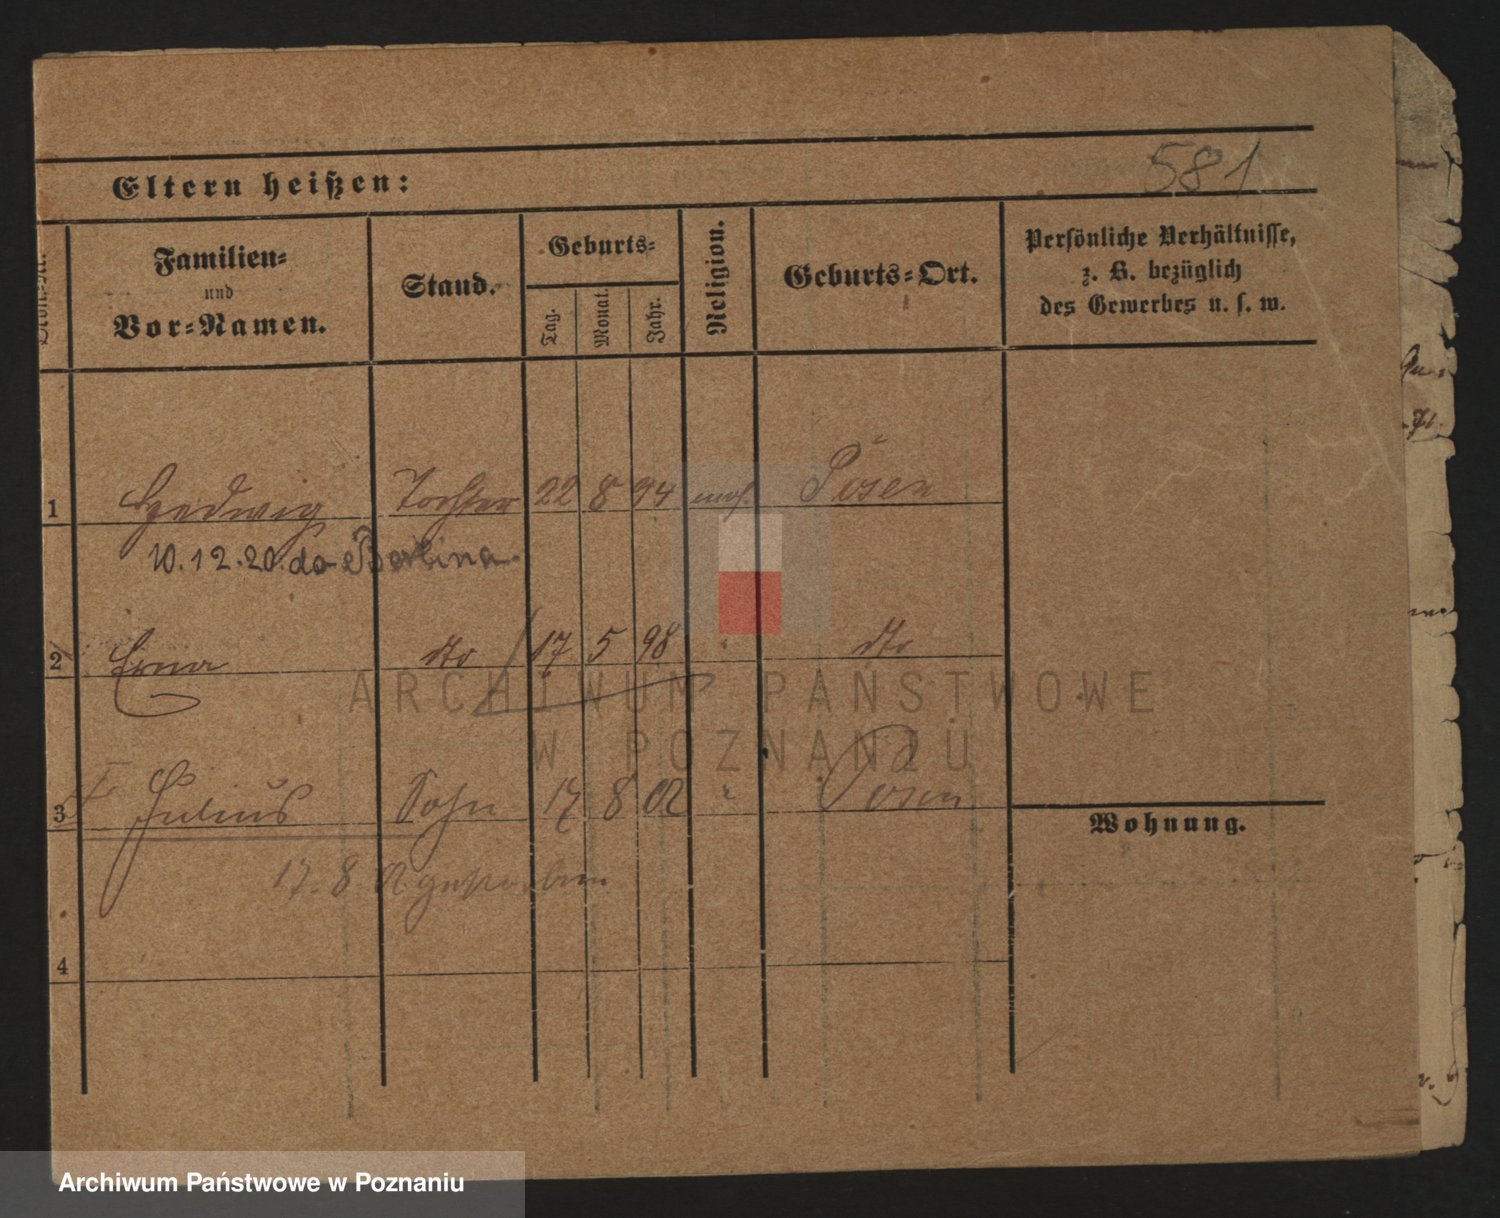 581
Eltern heißen:
Familien=
und
Vor=Namen.
Stand.
Geburts=
Tag.
Monat.
Jahr.
Religion.
Geburts=Ort.
Persönliche Verhältnisse,
z. B. bezüglich
des Gewerbes u. s. w.
1 Hedwig Tochter 22 8 94 mos. Posen
10.12.20. do Berlina.
2 Erna dto 17 5 98 " dto
ARCHIWUM PAŃSTWOWE
W POZNANIU
3 Julius Sohn 17 8 02 " Posen
Wohnung.
17. 8. 02 gestorben
4
Archiwum Państwowe w Poznaniu